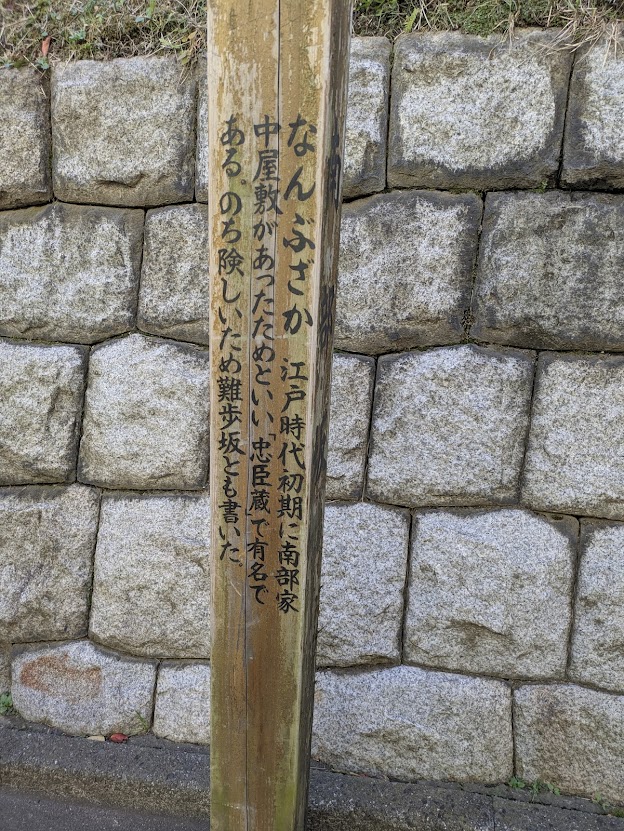 なんぶざか 江戸時代初期に南部家
中屋敷があったためといい「忠臣蔵」で有名で
ある。のち険しいため難歩坂とも書いた。